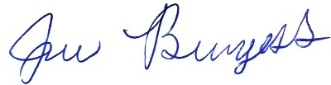 Jim Burgess